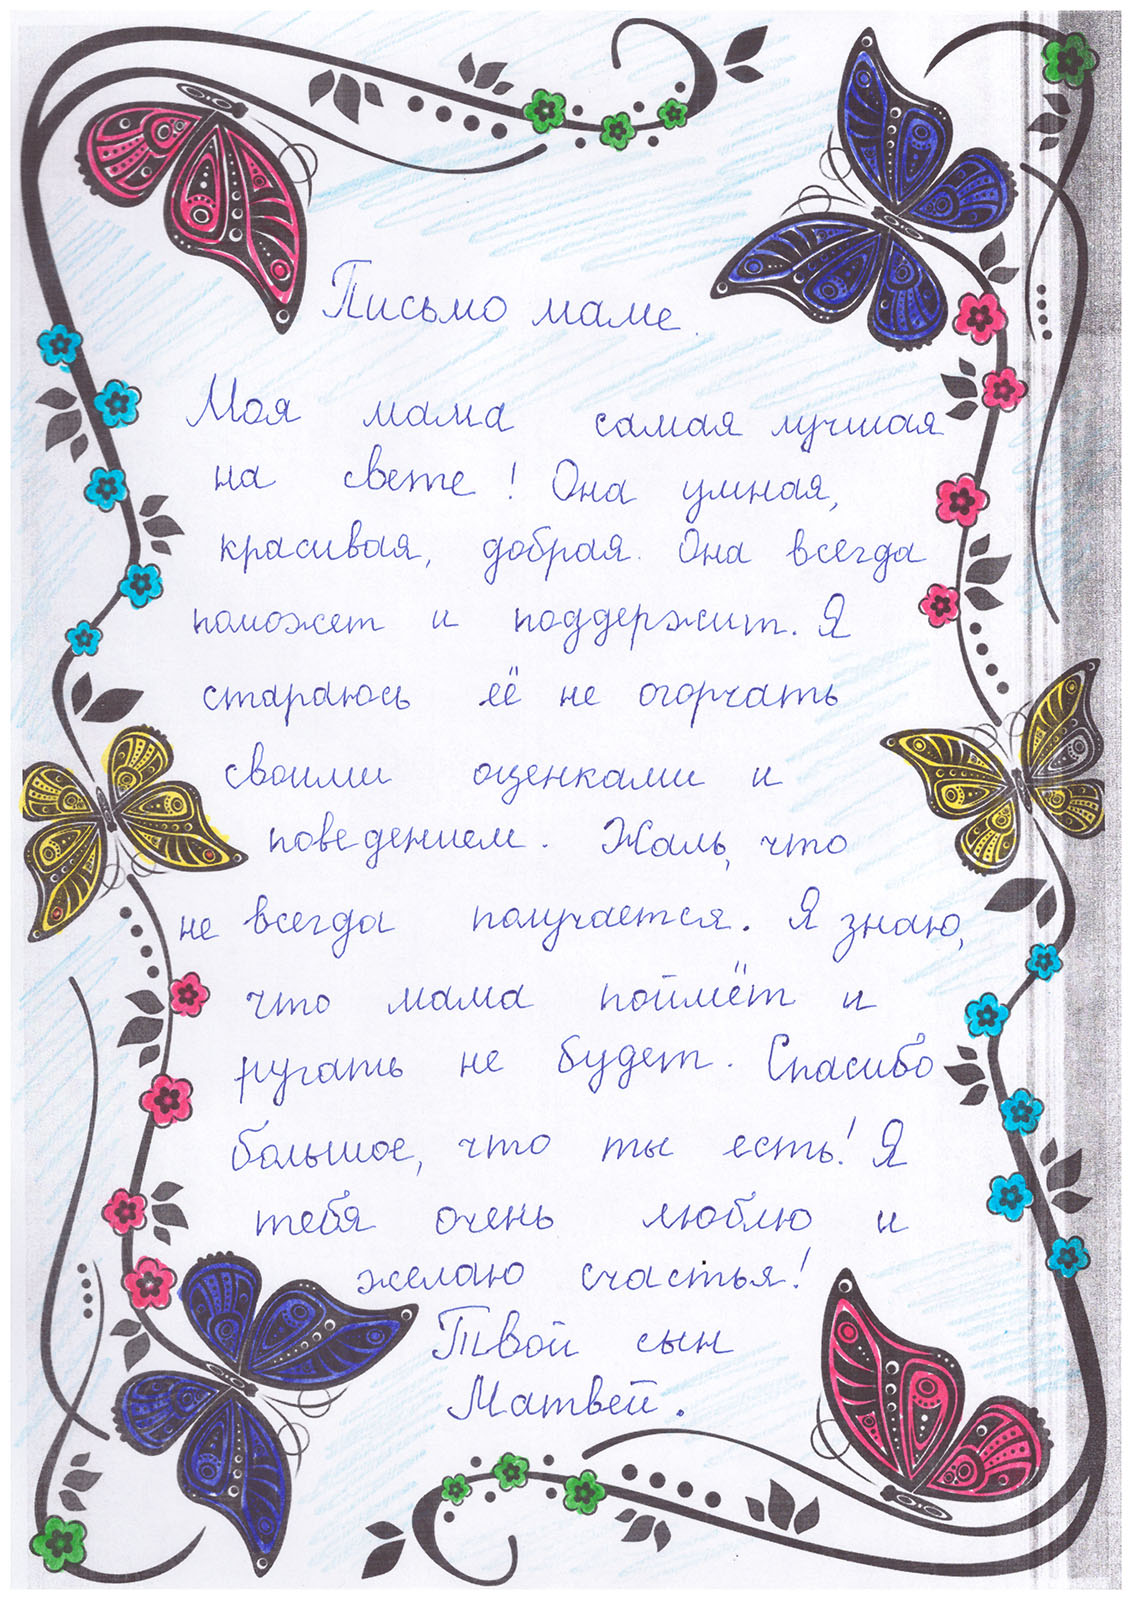 Письмо маме.
Моя мама самая лучшая
на свете! Она умная,
красивая, добрая. Она всегда
поможет и поддержит. Я
стараюсь её не огорчать
своими оценками и
поведением. Жаль, что
не всегда получается. Я знаю,
что мама поймёт и
ругать не будет. Спасибо
большое, что ты есть! Я
тебя очень люблю и
желаю счастья!
Твой сын
Матвей.